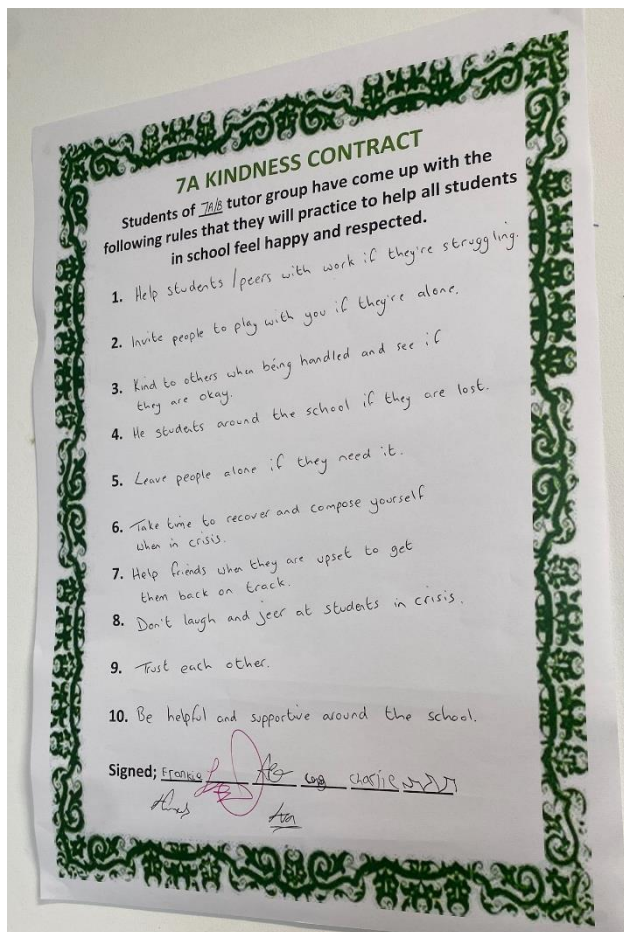 7A KINDNESS CONTRACT
Students of 7A/B tutor group have come up with the
following rules that they will practice to help all students
in school feel happy and respected.
1. Help students / peers with work if they're struggling.
2. Invite people to play with you if they're alone.
3. Kind to others when being handled and see if
they are okay.
4. He students around the school if they are lost.
5. Leave people alone if they need it.
6. Take time to recover and compose yourself
when in crisis.
7. Help friends when they are upset to get
them back on track.
8. Don't laugh and jeer at students in crisis.
9. Trust each other.
10. Be helpful and supportive around the school.
Signed; Frankie Charlie